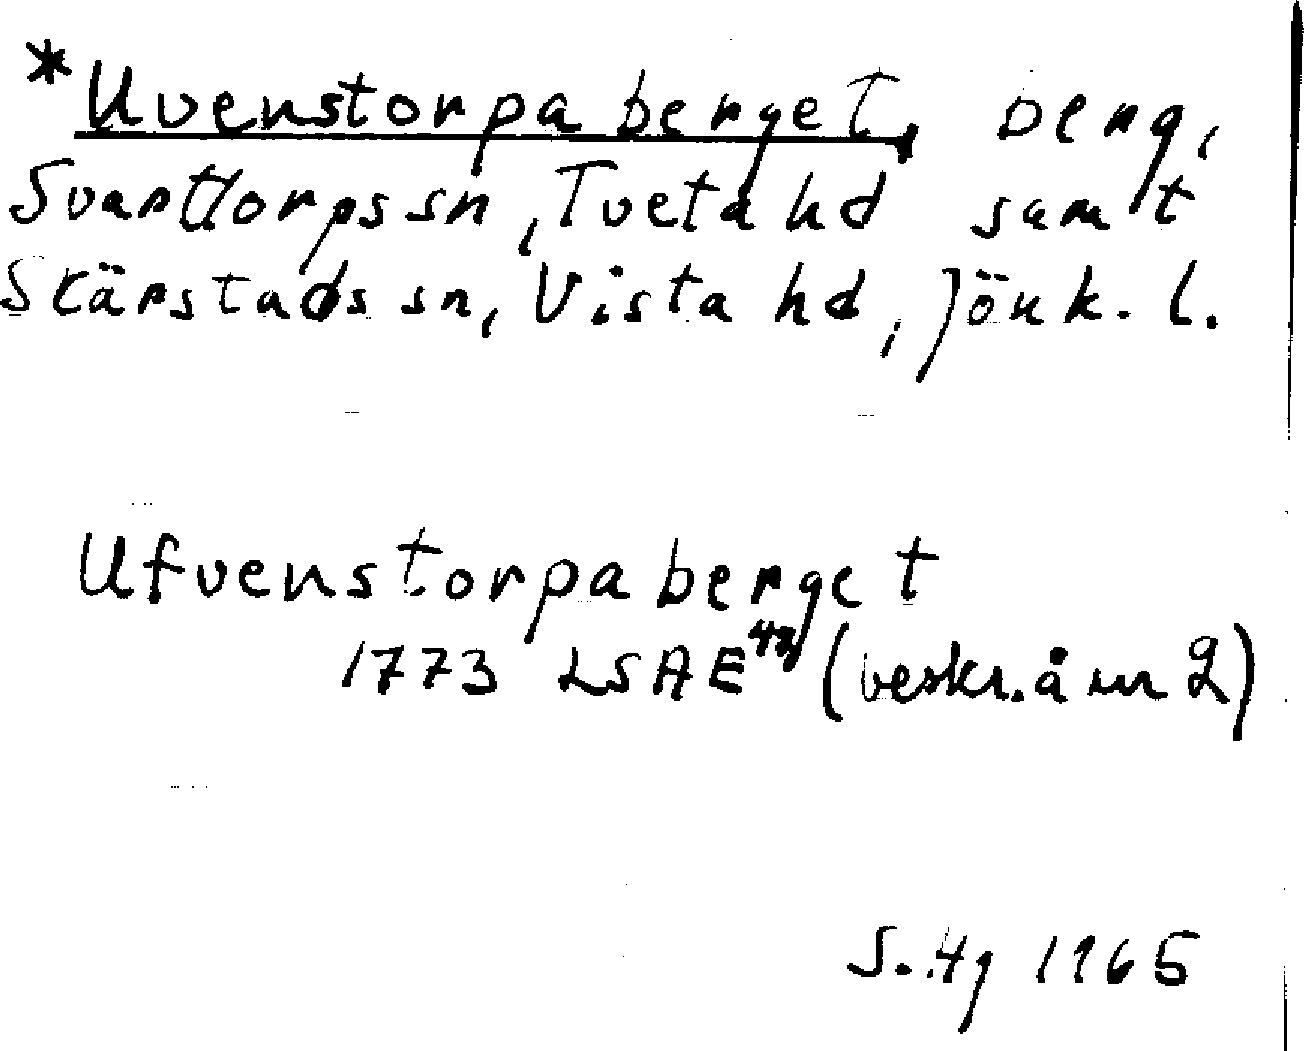 *Uvenstorpaberget, berg,
Svarttorps sn, Tveta hd samt
Skärstads sn, Vista hd, Jönk. l.
Ufvenstorpaberget
1773 LSA E (beskr. å nr 2)
S. Hg 1965